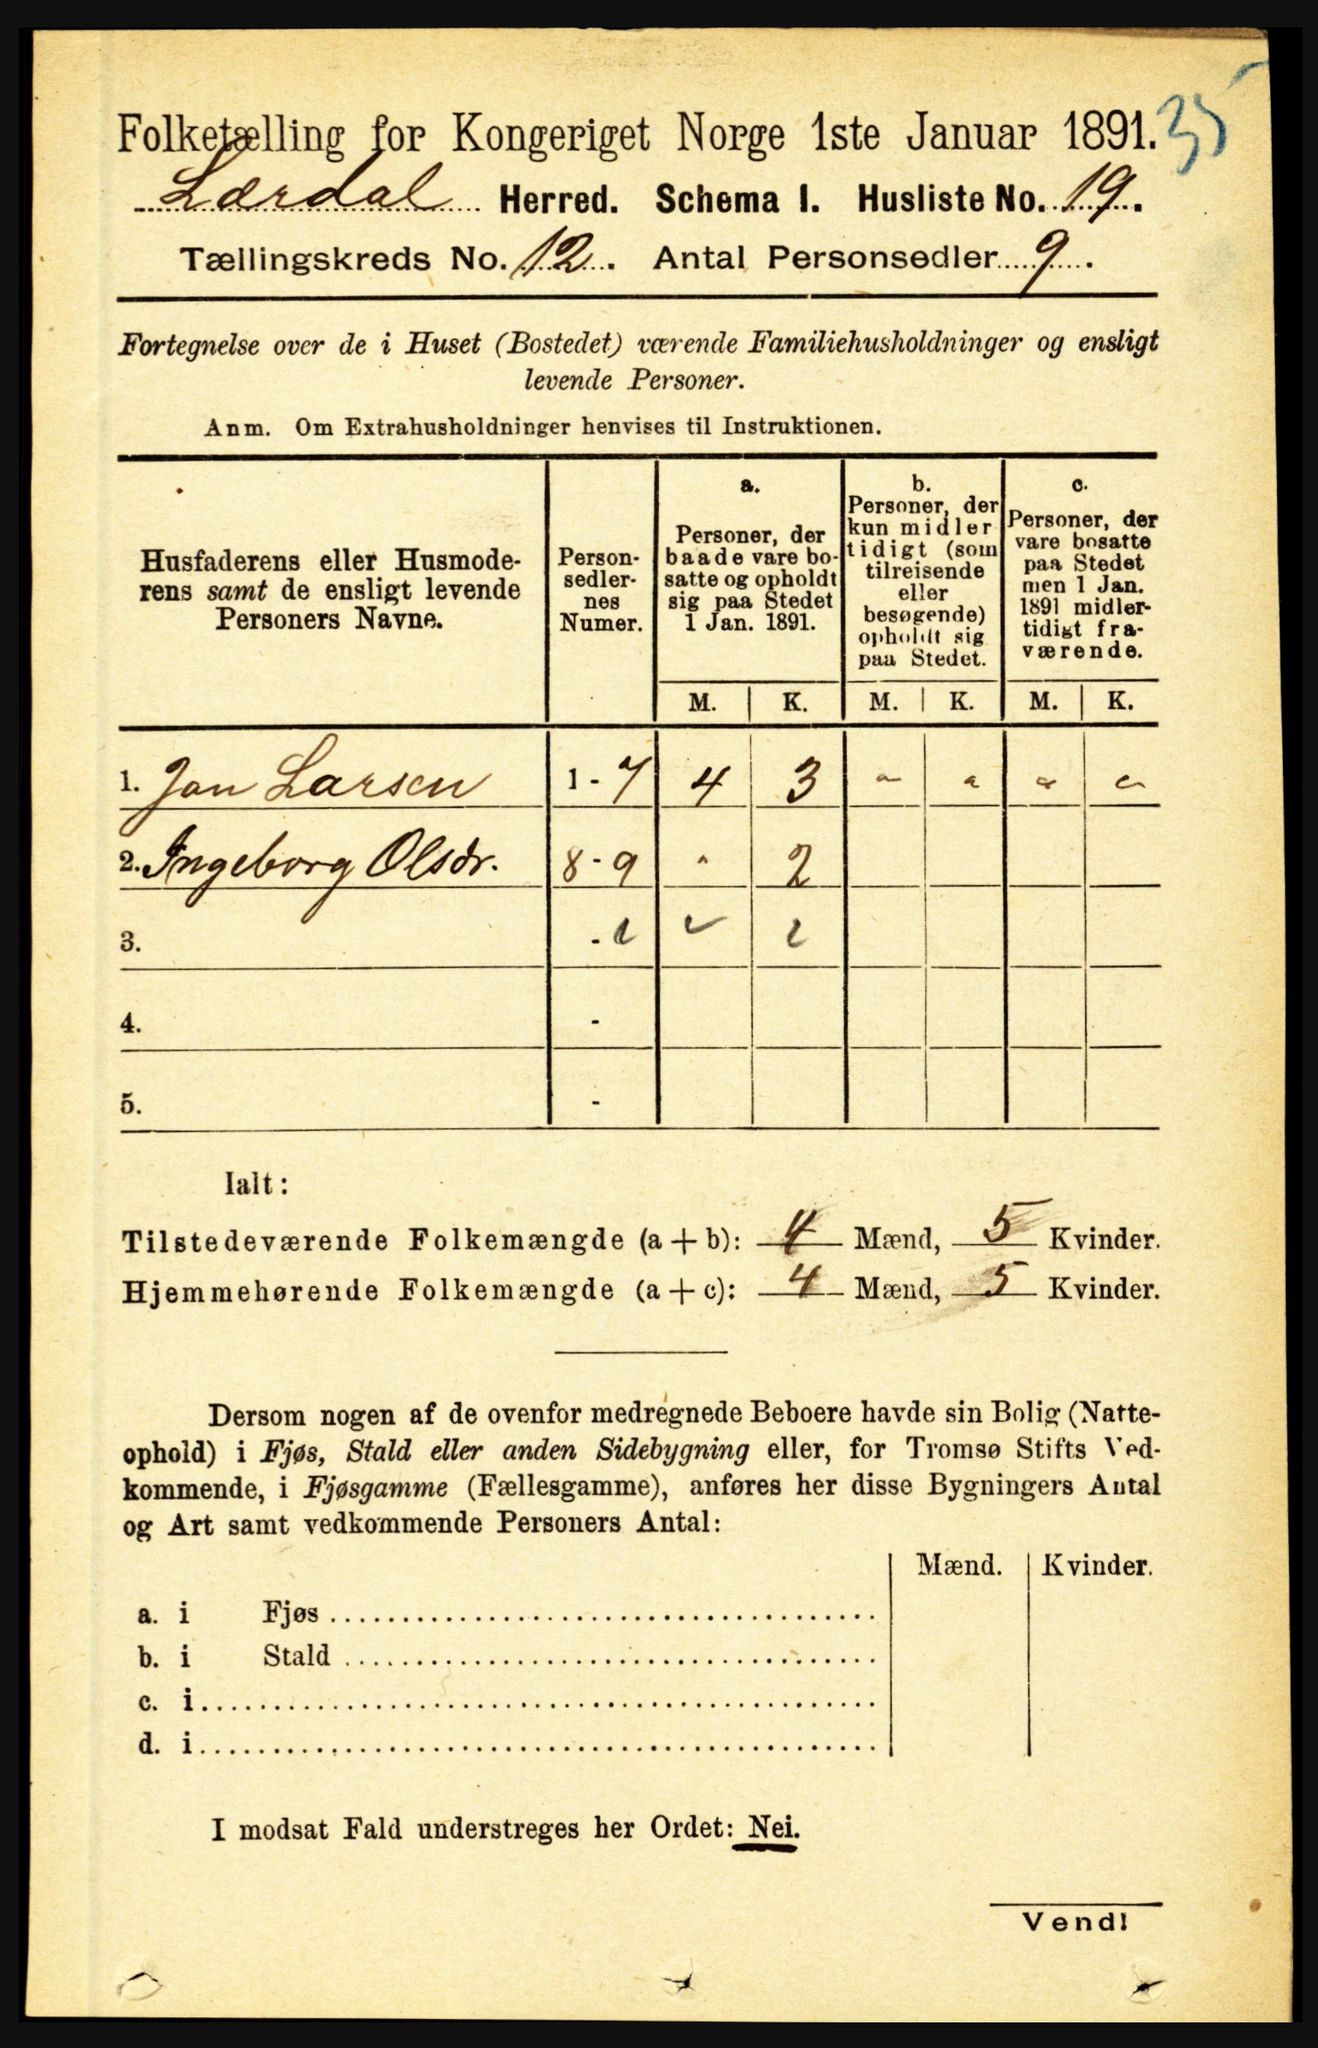 35
Folketælling for Kongeriget Norge 1ste Januar 1891.
Lærdal Herred. Schema I. Husliste No. 19.
Tællingskreds No. 12. Antal Personsedler 9.
Fortegnelse over de i Huset (Bostedet) værende Familiehusholdninger og ensligt
levende Personer.
Anm. Om Extrahusholdninger henvises til Instruktionen.
Husfaderens eller Husmode-
rens samt de ensligt levende
Personers Navne.
Person-
sedler-
nes
Numer.
a.
Personer, der
baade vare bo-
satte og opholdt
sig paa Stedet
1 Jan. 1891.
b.
Personer, der
kun midler
tidigt (som
tilreisende
eller
besøgende)
opholdt sig
paa Stedet.
c.
Personer, der
vare bosatte
paa Stedet
men 1 Jan.
1891 midler-
tidigt fra-
værende.
M. K. M. K. M. K.
1. Jan Larsen 1 - 7 4 3 " " " "
2. Ingeborg Olsdr. 8 - 9 " 2
3. -
4. -
5. -
Ialt:
Tilstedeværende Folkemængde (a + b): 4 Mænd, 5 Kvinder.
Hjemmehørende Folkemængde (a + c): 4 Mænd, 5 Kvinder.
Dersom nogen af de ovenfor medregnede Beboere havde sin Bolig (Natte-
ophold) i Fjøs, Stald eller anden Sidebygning eller, for Tromsø Stifts Ved-
kommende, i Fjøsgamme (Fællesgamme), anføres her disse Bygningers Antal
og Art samt vedkommende Personers Antal:
Mænd. Kvinder.
a. i Fjøs
b. i Stald
c. i
d. i
I modsat Fald understreges her Ordet: Nei.
Vend!